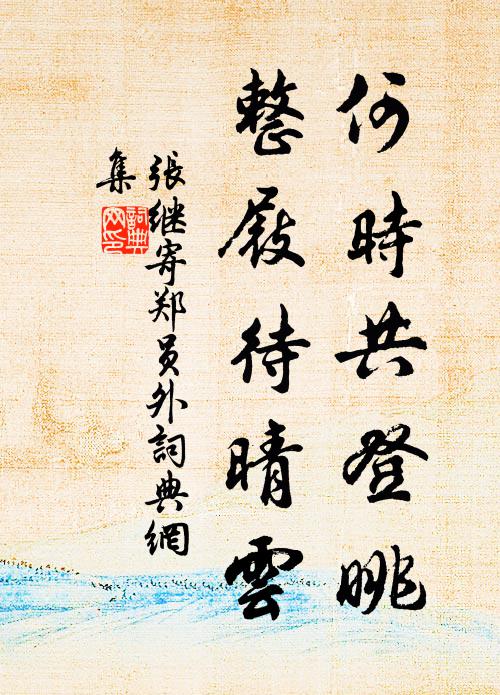 何時共登眺
整屐待晴雲
張继寄郑员外詞典網
集
詞典网印